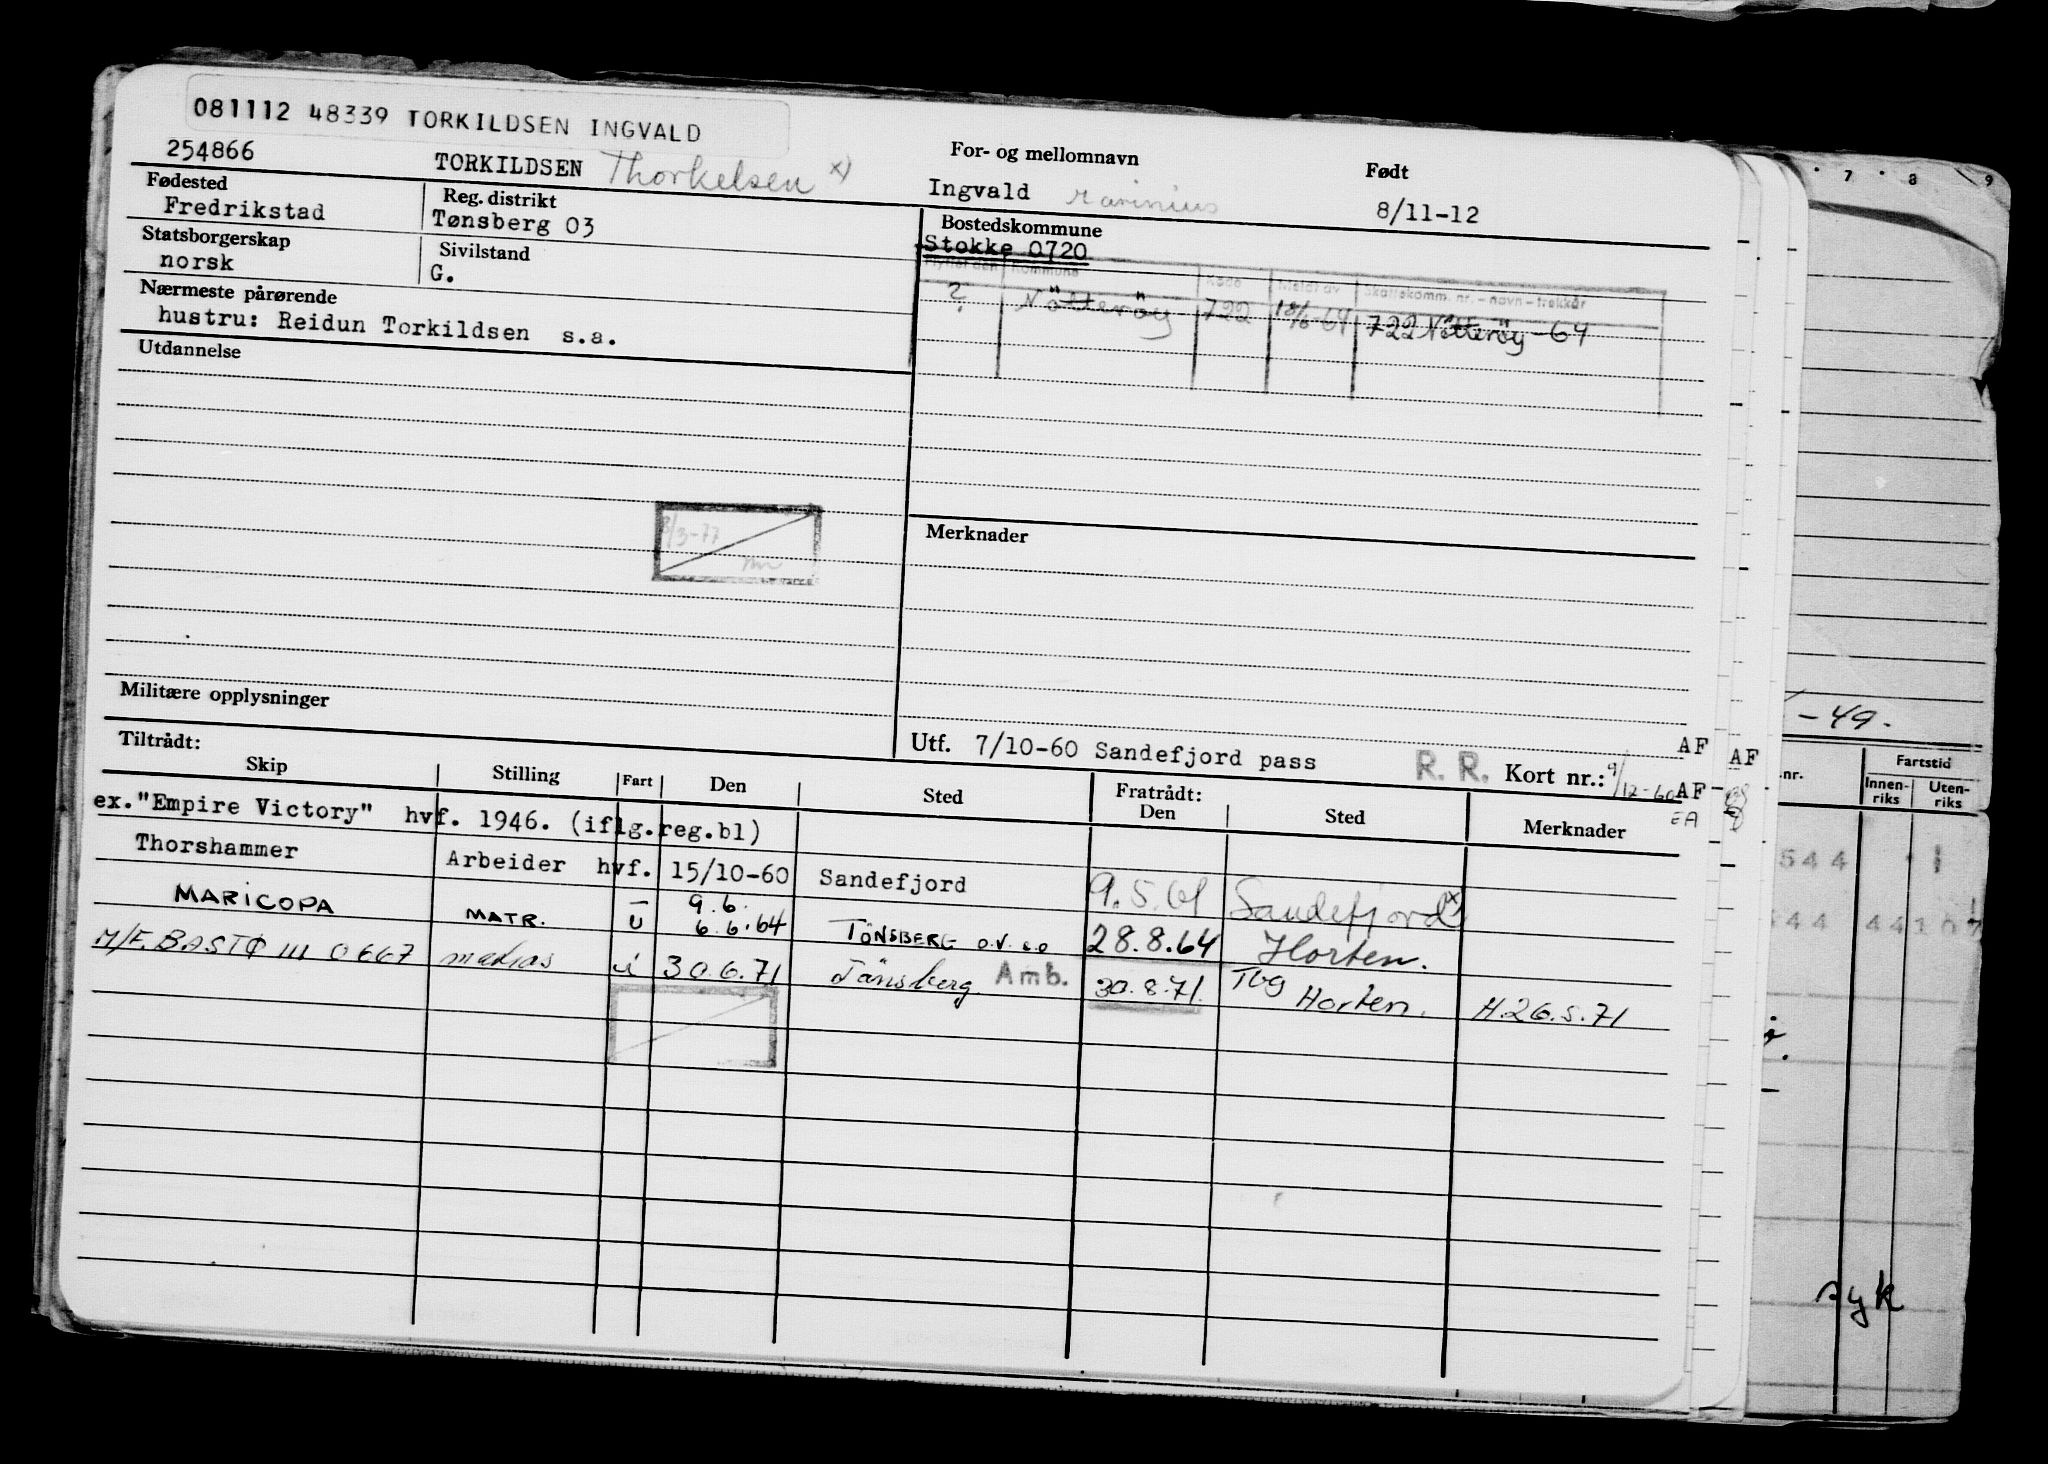 081112 48339 TORKILDSEN INGVALD
254866 TORKILDSEN Thorkelsen x)
For- og mellomnavn
Ingvald Marinius
Født
8/11-12
Fødested
Fredrikstad
Reg. distrikt
Tønsberg 03
Statsborgerskap
norsk
Sivilstand
G.
Nærmeste pårørende
hustru: Reidun Torkildsen s.a.
Bostedskommune
Stokke 0720
Flyttet den Kommune Kode Meldt av Skattekomm. nr. - navn - trekkår
? Nötteröy 722 18/6-64 722 Nötteröy -64
Utdannelse
8/3-77
Merknader
Militære opplysninger
Utf. 7/10-60 Sandefjord pass R. R. Kort nr.: 9/12-60 AF
AF
AF
EA
Tiltrådt:
Skip Stilling Fart Den Sted Fratrådt: Den Sted Merknader
ex."Empire Victory" hvf. 1946. (iflg.reg.bl)
Thorshammer Arbeider hvf. 15/10-60 Sandefjord 9.5.61 Sandefjord x)
MARICOPA MATR. U 9.6. 6.6.64 TÖNSBERG 28.8.64 Horten.
M/F. BASTØ III 0667 matros i 30.6.71 Tönsberg Amb. 30.8.71. Tbg Horten. H.26.5.71
7 8 9
-49.
nr. Fartstid
Innen-riks Uten-riks
544 1
544 44107
syk